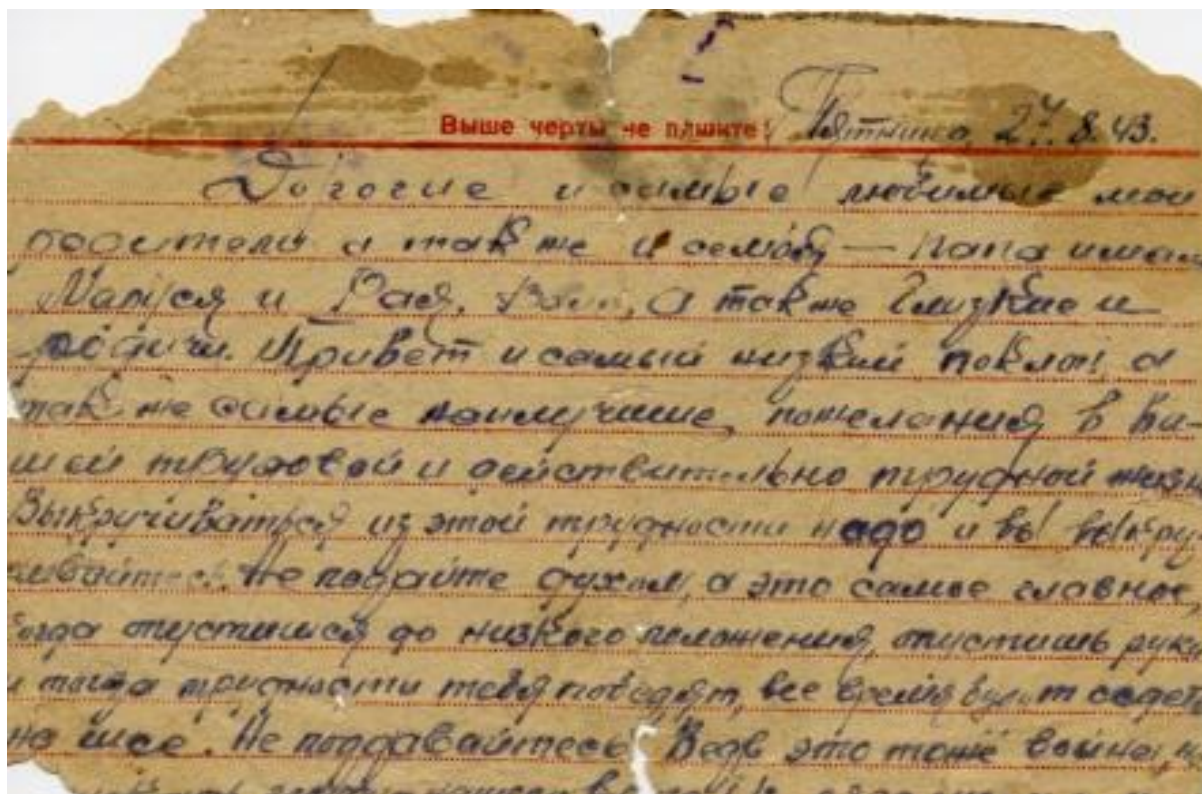 Выше черты не пишите! Пятница, 27. 8. 43.
Дорогие и самые любимые мои
родители а так же и семью — папа и мам
Маруся и Рая, Валя, а также близкие и
родичи. Привет и самый низкий поклон, а
так же самые наилучшие, пожелания в ва-
шей трудовой и действительно трудной жизн
Выкручиваться из этой трудности надо и вы выкру
чивайтесь. Не падайте духом, а это самое главное,
когда опустишься до низкого положения, опустишь руки
и тогда трудности тебя победят, все время будут сидеть
на шее. Не поддавайтесь. Ведь это тоже война,